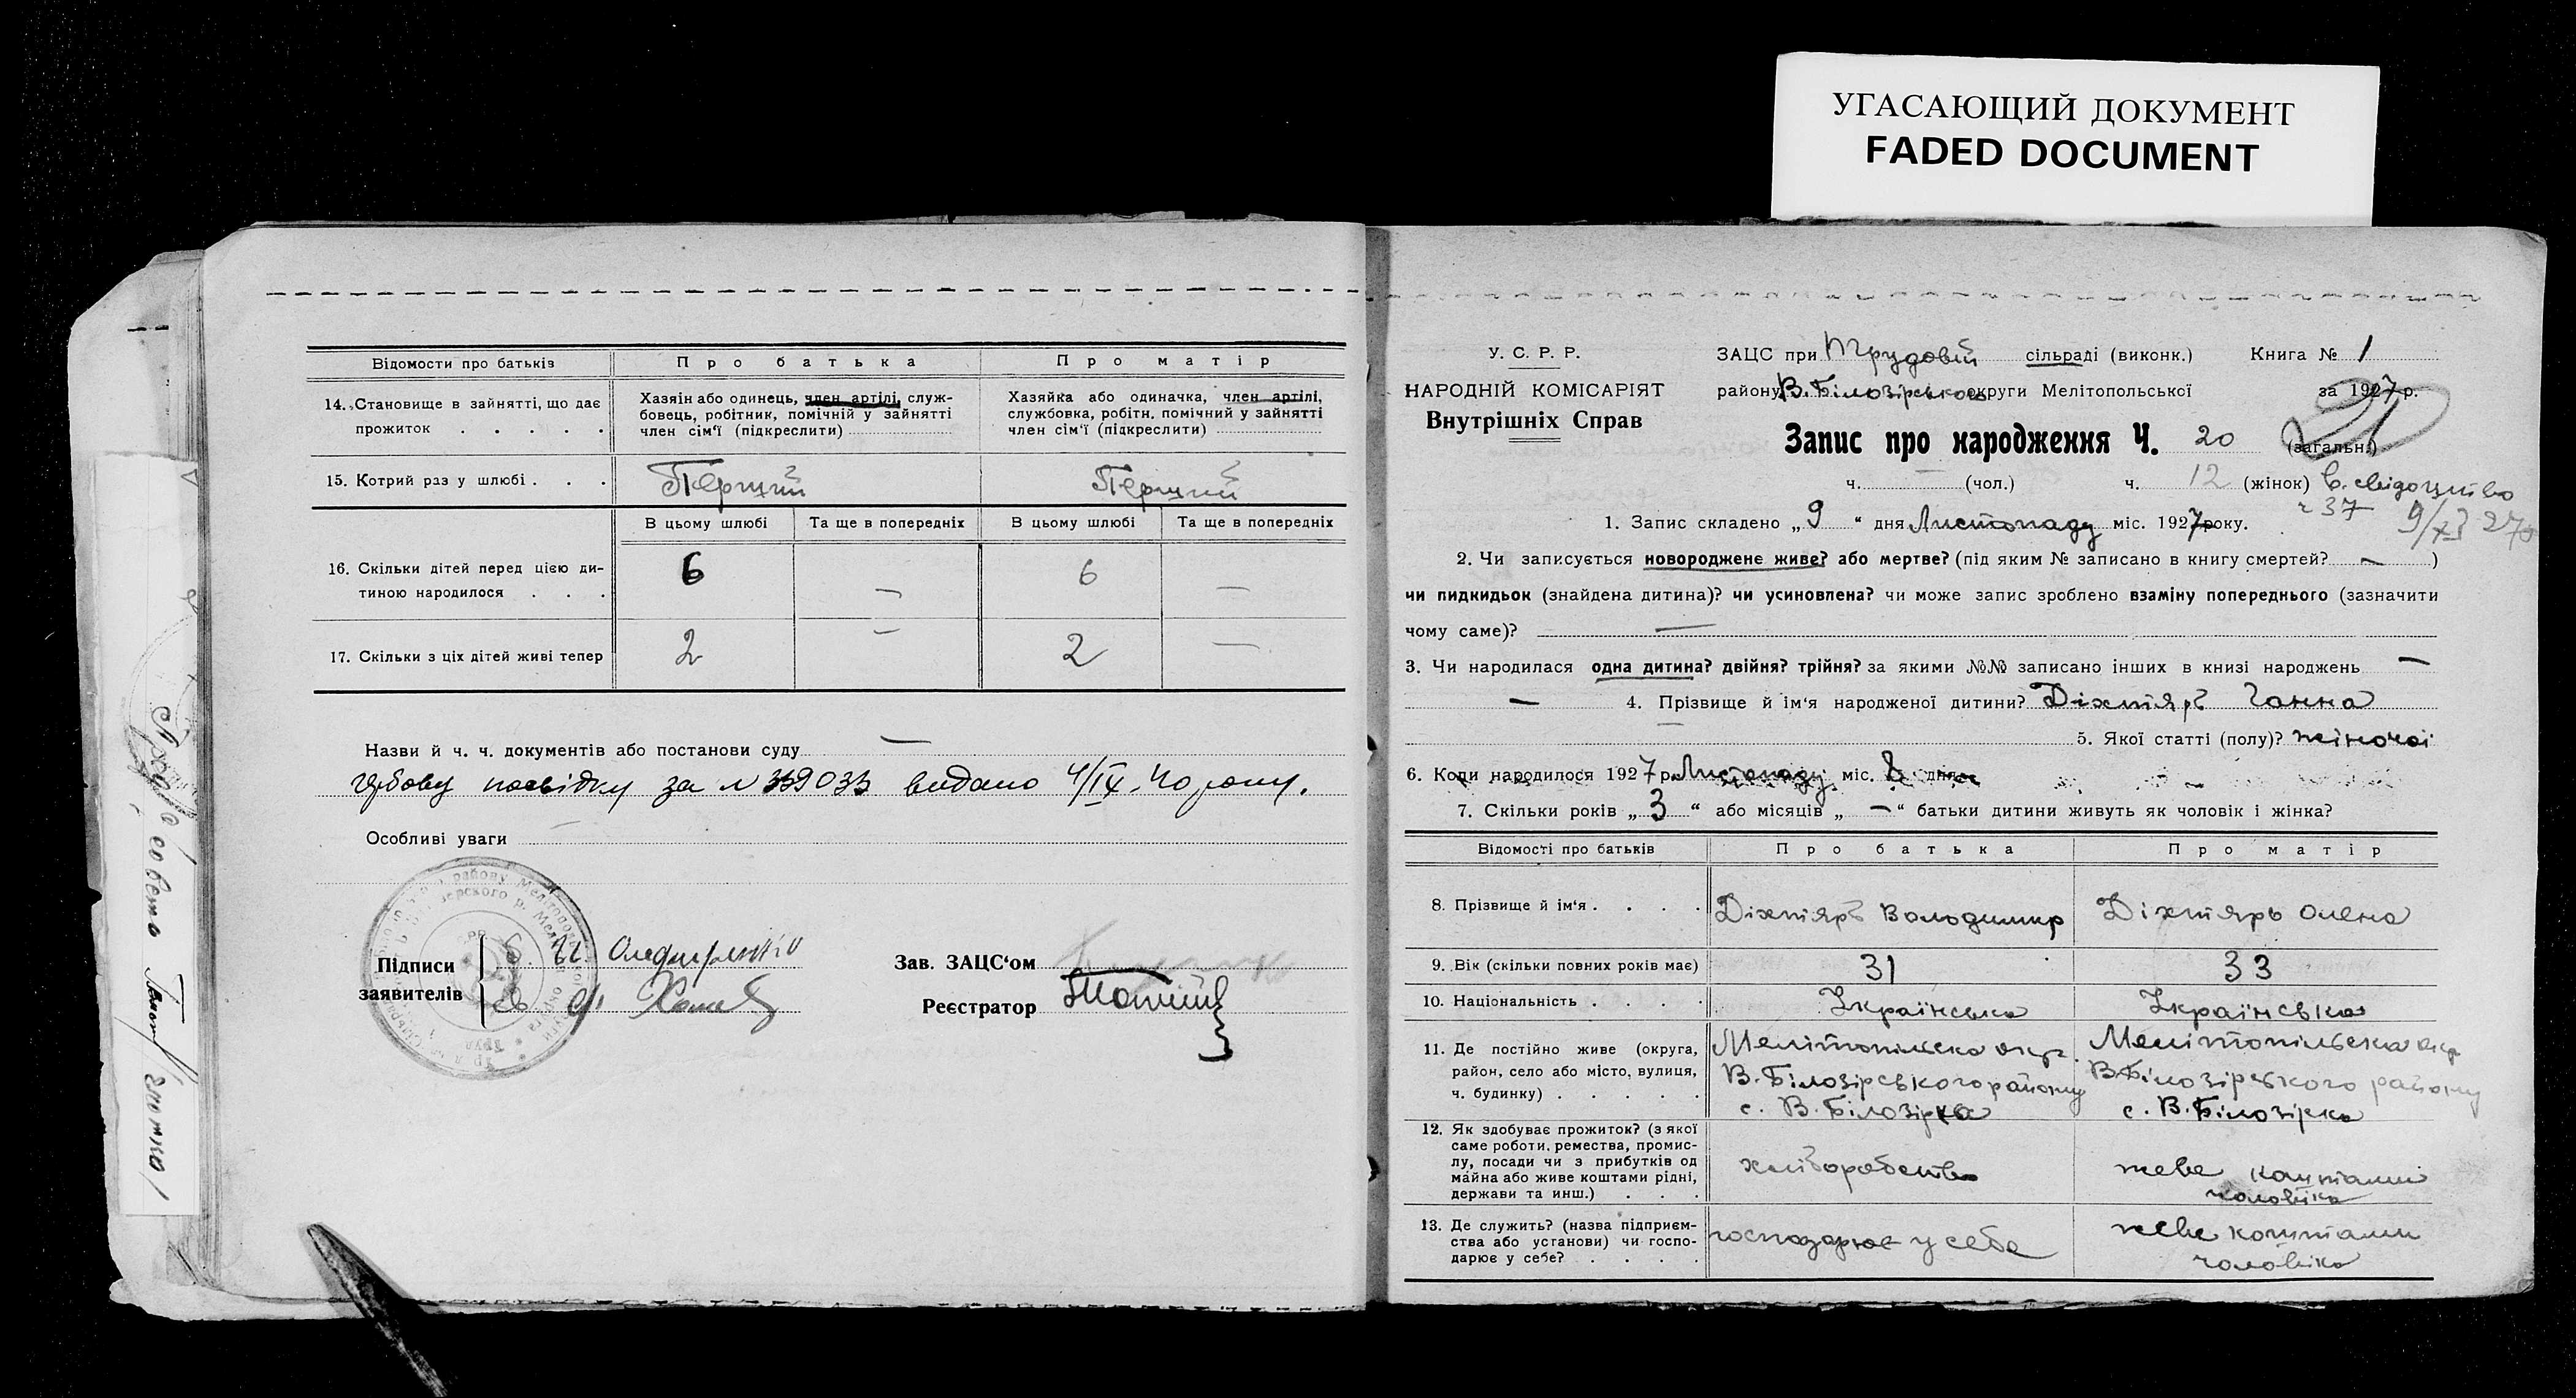 УГАСАЮЩИЙ ДОКУМЕНТ
FADED DOCUMENT
Відомости про батьків
Про батька
Про матір
14. Становище в зайнятті, що дає
прожиток . . . . .
Хазяін або одинець, член артілі, служ-
бовець, робітник, помічній у зайнятті
член сім'ї (підкреслити)
Хазяйка або одиначка, член артілі,
службовка, робітн. помічний у зайнятті
член сім'ї (підкреслити)
15. Котрий раз у шлюбі . . .
Перший
Перший
В цьому шлюбі
Та ще в попередніх
В цьому шлюбі
Та ще в попередніх
16. Скільки дітей перед цією ди-
тиною народилося . . .
6 — 6 —
17. Скільки з ціх дітей живі тепер
2 — 2 —
Назви й ч. ч. документів або постанови суду —
гербову посвідку за № 339033 видано 4/IX. 40 року.
Особливі уваги
Підписи
заявителів
Зав. ЗАЦС'ом
Реєстратор
У. С. Р. Р.
НАРОДНІЙ КОМІСАРІЯТ
Внутрішніх Справ
ЗАЦС при Трудовій сільраді (виконк.) Книга № 1
району В. Білозірської округи Мелітопольської за 1927 р.
Запис про народження Ч. 20 (загальн.)
21
ч. — (чол.) ч. 12 (жінок) в. свідоцтво
ч 37 9/XI 27р
1. Запис складено „9“ дня Листопаду міс. 1927 року.
2. Чи записується новороджене живе? або мертве? (під яким № записано в книгу смертей? — )
чи пидкидьок (знайдена дитина)? чи усиновлена? чи може запис зроблено взаміну попереднього (зазначити
чому саме)? —
3. Чи народилася одна дитина? двійня? трійня? за якими №№ записано інших в книзі народжень —
— 4. Прізвище й ім'я народженої дитини? Діхтярь Ганна
5. Якої статті (полу)? жіночої
6. Коли народилося 1927 р. Листопаду міс. 8 дня
7. Скільки років „3“ або місяців „—“ батьки дитини живуть як чоловік і жінка?
Відомості про батьків
Про батька
Про матір
8. Прізвище й ім'я . . . .
Діхтярь Володимир
Діхтярь Олена
9. Вік (скільки повних років має)
31
33
10. Національність . . . .
Українська
Українська
11. Де постійно живе (округа,
район, село або місто, вулиця,
ч. будинку) . . . . .
Мелітопільска окр.
В. Білозірського району
с. В. Білозірка
Мелітопільська окр
В. Білозірського району
с. В. Білозірка
12. Як здобуває прожиток? (з якої
саме роботи, ремества, промис-
лу, посади чи з прибутків од
майна або живе коштами рідні,
держави та инш.) . . .
хліборобство
живе коштами
чоловіка
13. Де служить? (назва підприєм-
ства або установи) чи госпо-
дарює у себе? . . . .
господарює у себе
живе коштами
чоловіка